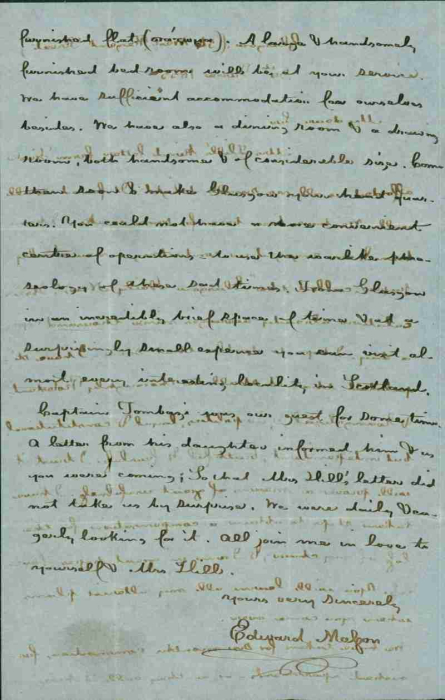 furnished flat ( ). A large & handsomely
furnished bed room will be at your service.
We have sufficient accommodation for ourselves
besides. We have also a dining room & a drawing
room, both handsome & of considerable size. Come
then and make Glasgow your head quar-
ters. You could not have a more convenient
centre of operations to use the warlike phra-
seology of these sad times. From Glasgow
in an incredibly brief space of time & at a
surprisingly small expense you can visit al-
most every interesting locality in Scotland.
Captain Tombazi was our guest for sometime.
A letter from his daughter informed him & us
you were coming; so that Mrs Hill's letter did
not take us by surprise. We were daily & ea-
gerly looking for it. All join me in love to
yourself & Mrs Hill.
Yours very sincerely
Edward Masson